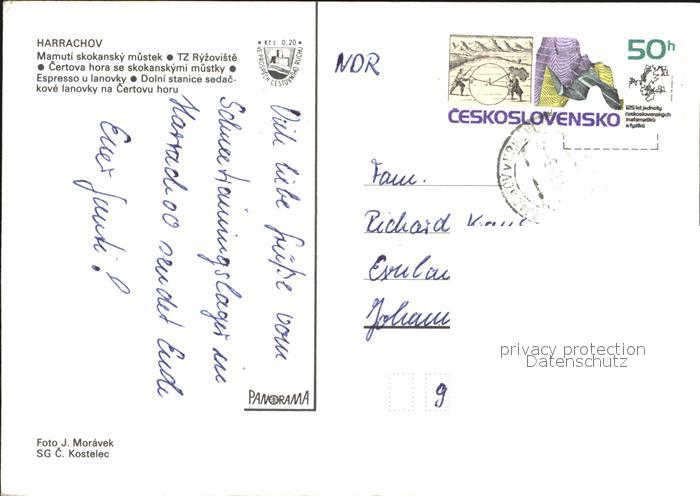 HARRACHOV
Mamutí skokanský můstek ● TZ Rýžoviště
● Čertova hora se skokanskými můstky ●
Espresso u lanovky ● Dolní stanice sedač-
kové lanovky na Čertovu horu
Kčs 0,20
VE PROSPĚCH CESTOVNÍHO RUCHU
Viele liebe Grüße vom
Schneetrainingslager in
Harrachov sendet Euch
Euer Gundi!
PANORAMA
Foto J. Morávek
SG Č. Kostelec
NDR
50h
ČESKOSLOVENSKO
125 let jednoty
československých
matematiků
a fyziků
Fam.
Richard
Johann
9
privacy protection
Datenschutz